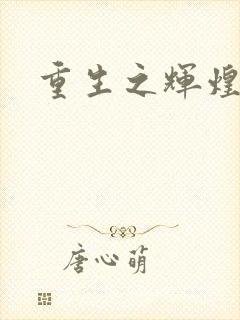 重生之辉煌
唐心萌